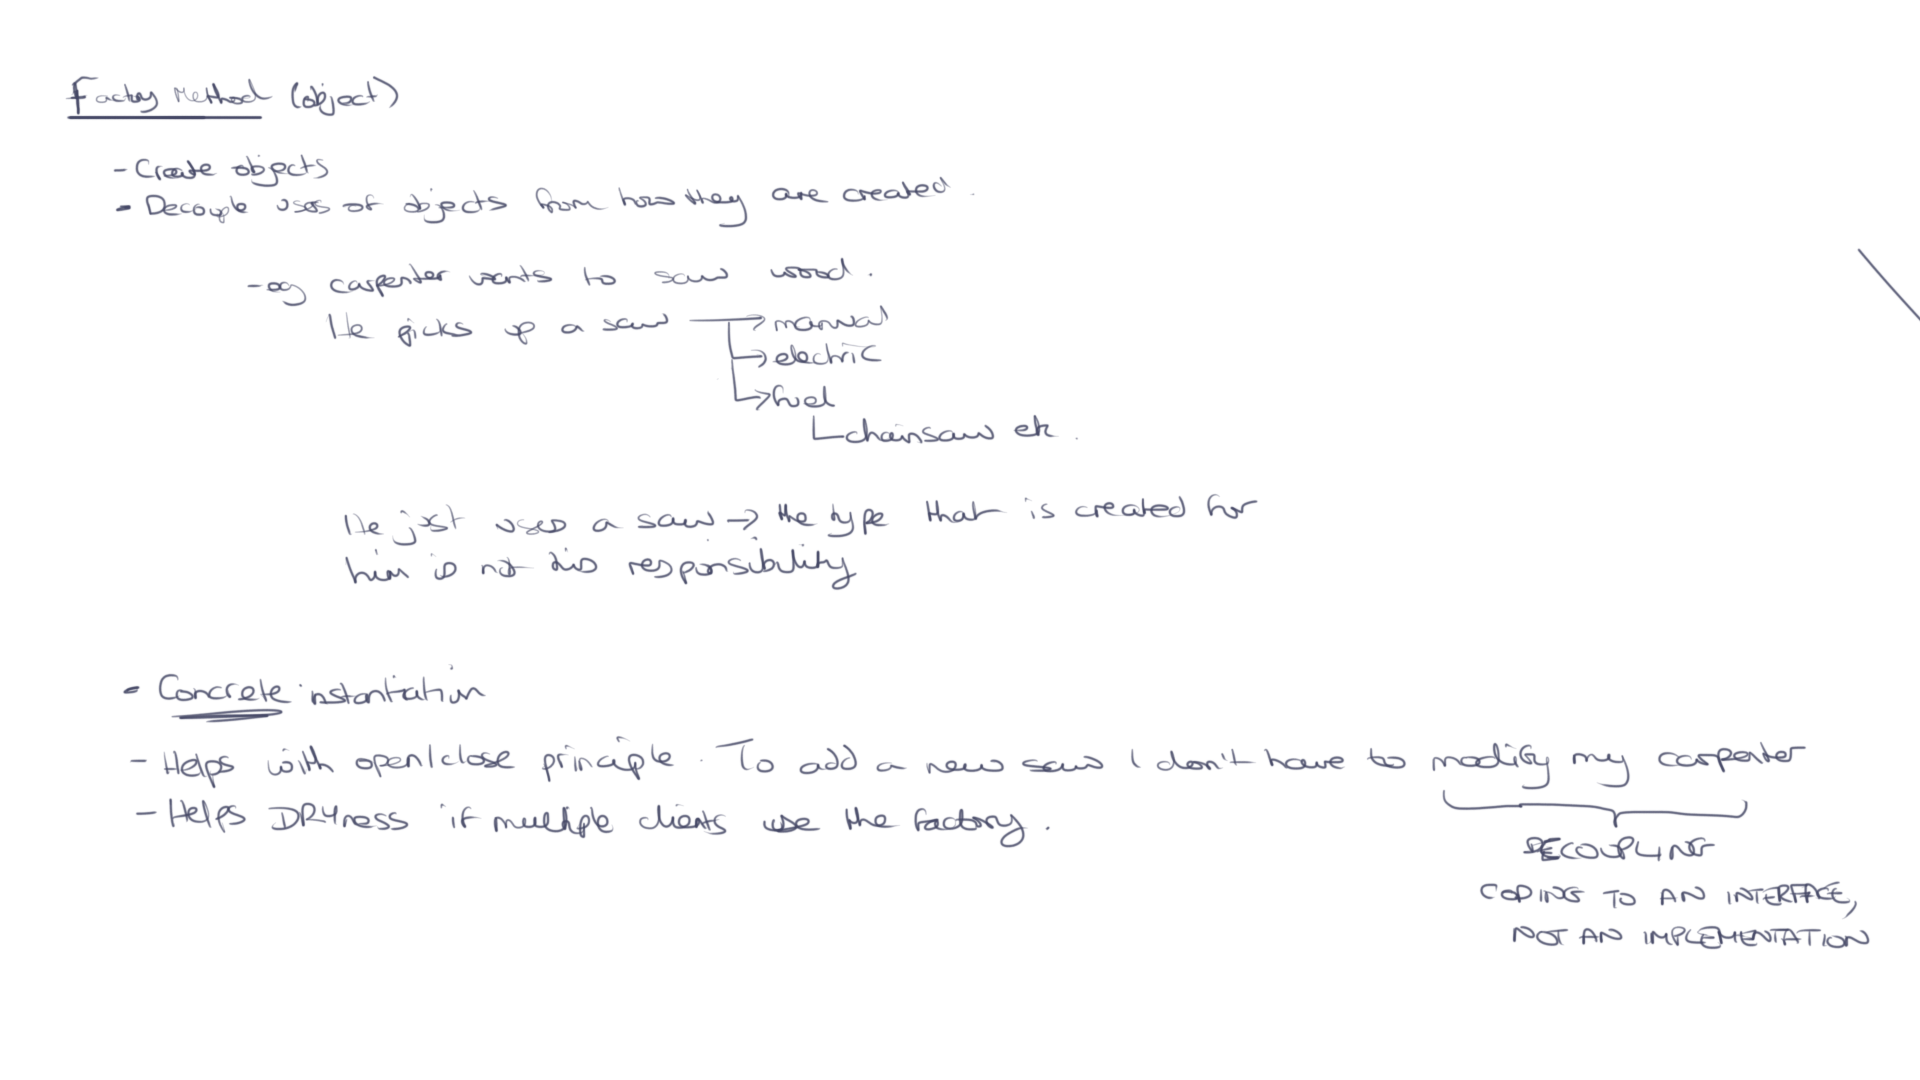 Factory Method (object)
- Create objects
- Decouple uses of objects from how they are created.
- eg carpenter wants to saw wood.
He picks up a saw → manual
→ electric
→ fuel
chainsaw etc.
He just uses a saw → the type that is created for
him is not his responsibility
- Concrete instantiation
- Helps with open/close principle. To add a new saw I don't have to modify my carpenter
- Helps DRYness if multiple clients use the factory.
DECOUPLING
CODING TO AN INTERFACE,
NOT AN IMPLEMENTATION